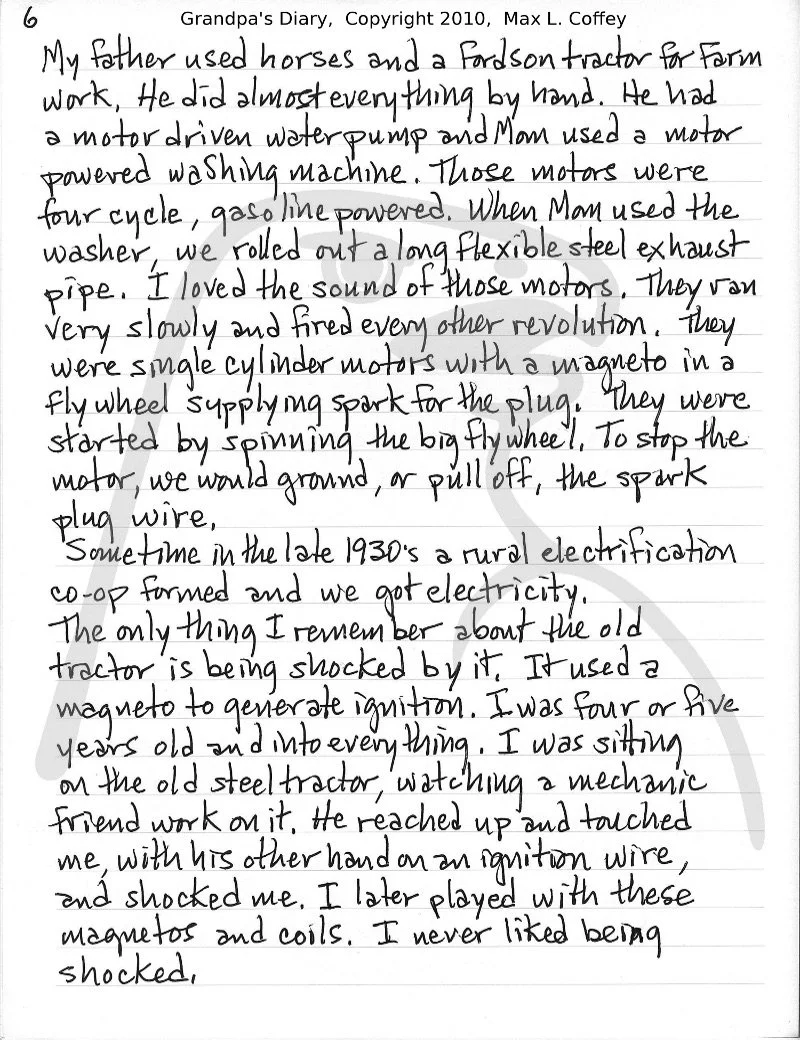 6
Grandpa's Diary, Copyright 2010, Max L. Coffey
My father used horses and a Fordson tractor for Farm
work. He did almost everything by hand. He had
a motor driven water pump and Mom used a motor
powered washing machine. Those motors were
four cycle, gasoline powered. When Mom used the
washer, we rolled out a long flexible steel exhaust
pipe. I loved the sound of those motors. They ran
very slowly and fired every other revolution. They
were single cylinder motors with a magneto in a
fly wheel supplying spark for the plug. They were
started by spinning the big fly wheel. To stop the
motor, we would ground, or pull off, the spark
plug wire.
Sometime in the late 1930's a rural electrification
co-op formed and we got electricity.
The only thing I remember about the old
tractor is being shocked by it. It used a
magneto to generate ignition. I was four or five
years old and into everything. I was sitting
on the old steel tractor, watching a mechanic
friend work on it. He reached up and touched
me, with his other hand on an ignition wire,
and shocked me. I later played with these
magnetos and coils. I never liked being
shocked.